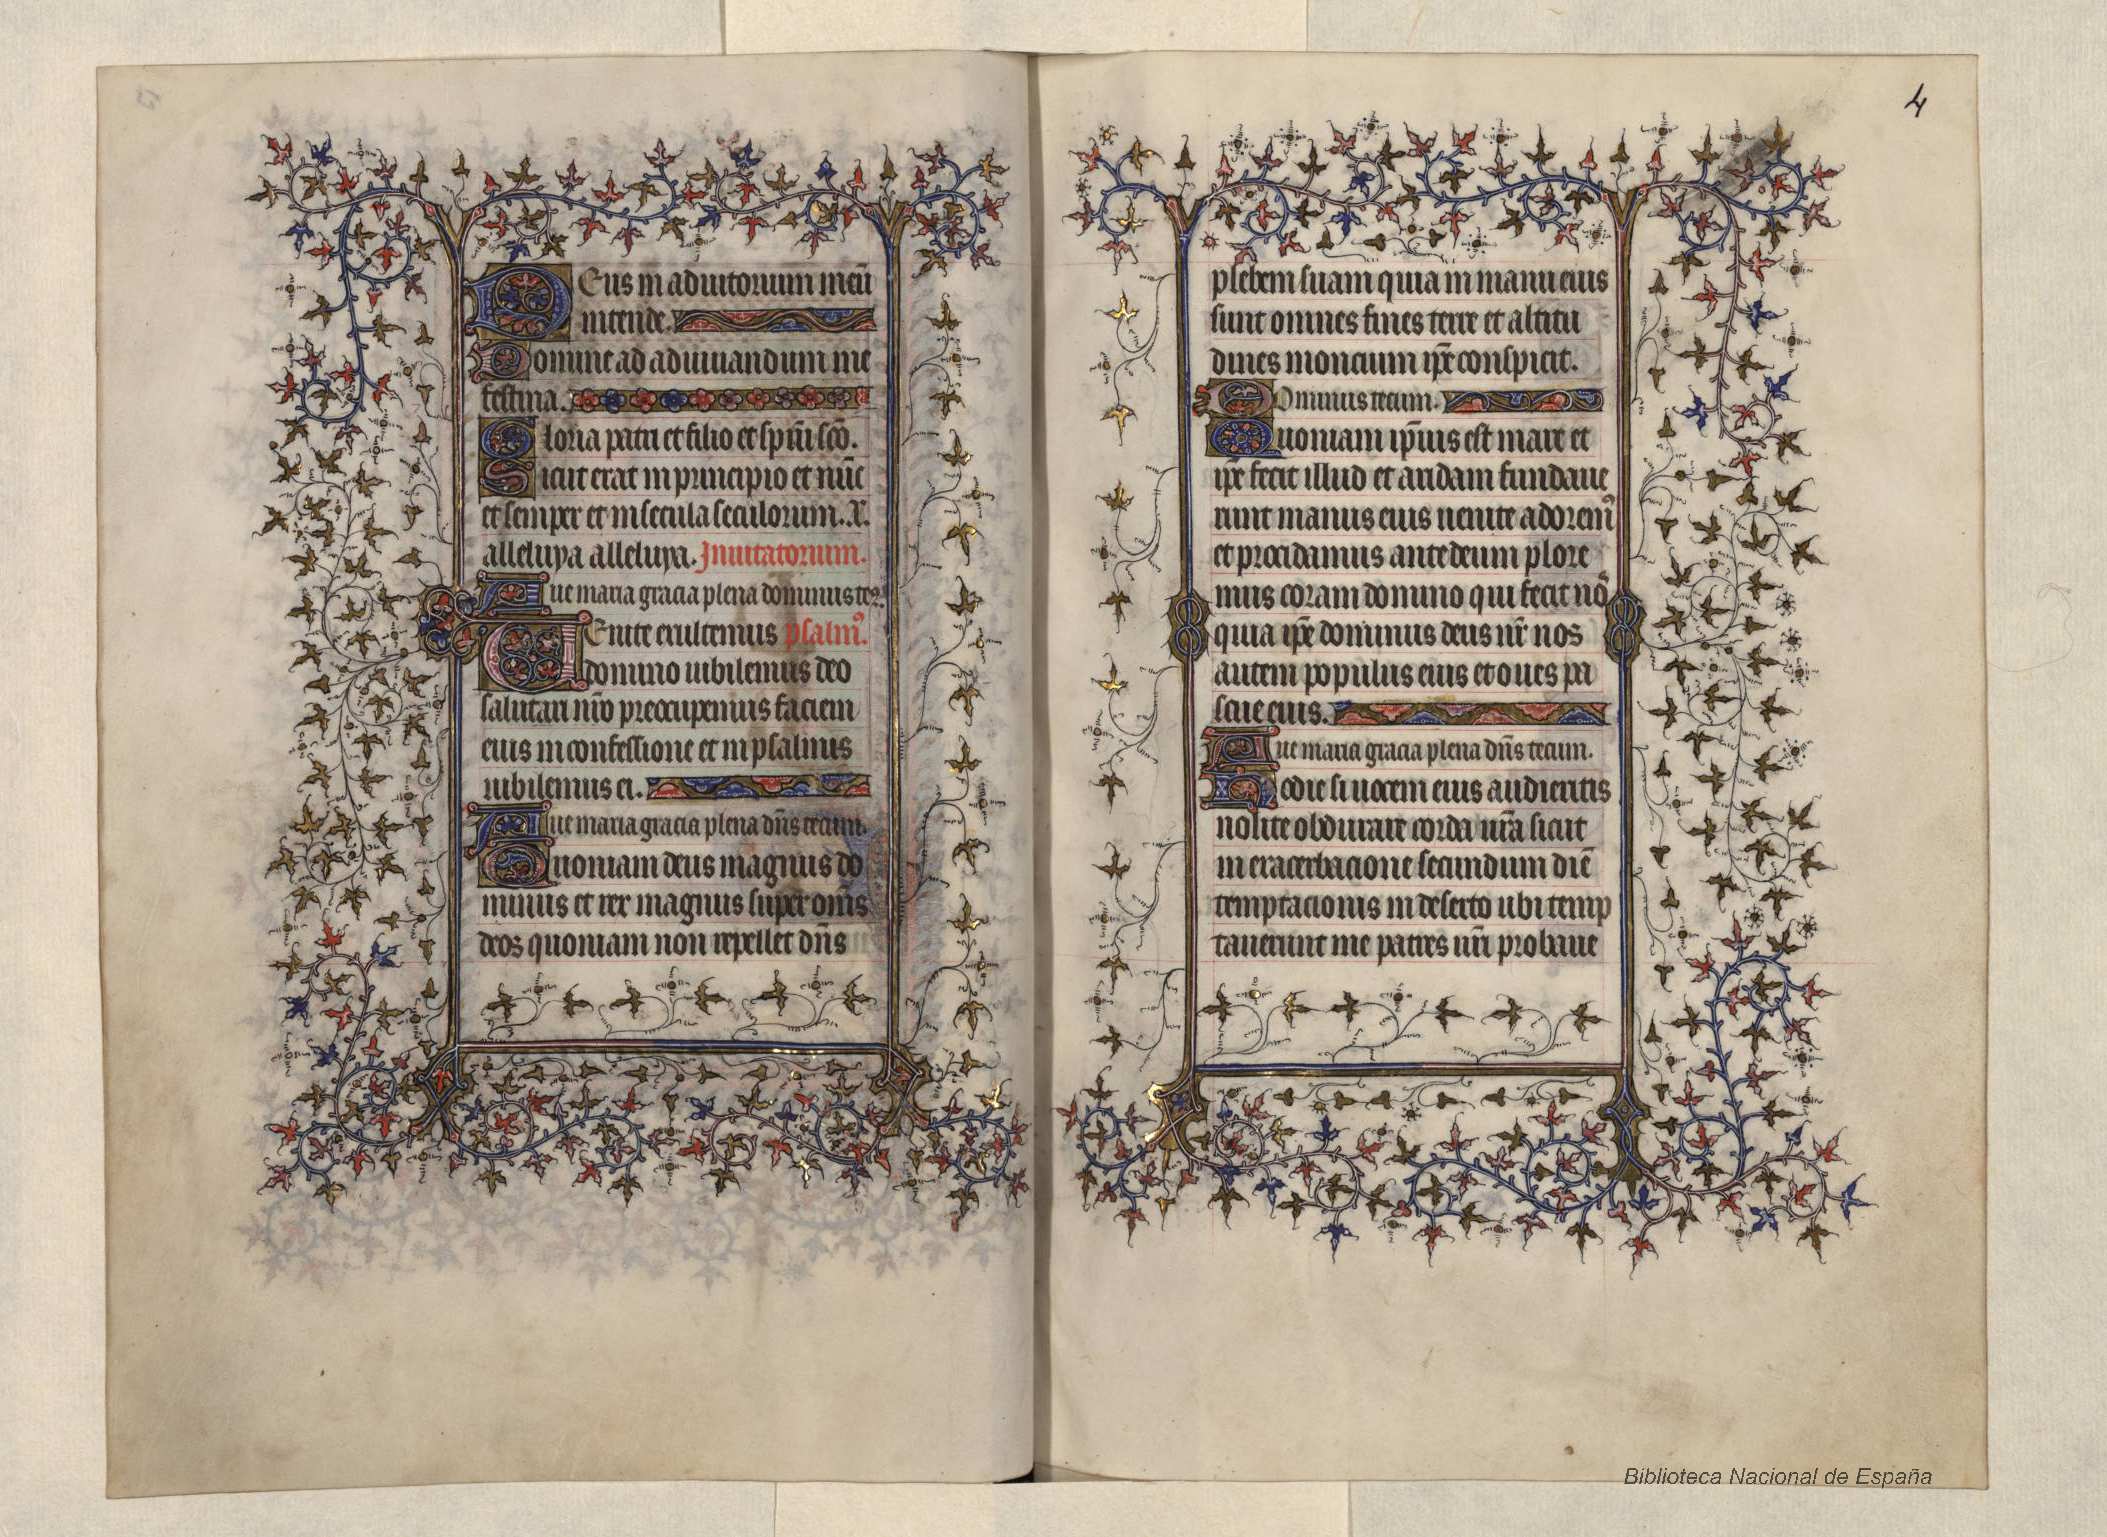 Deus in adiutorium meū
intende.
Domine ad adiuuandum me
festina.
Gloria patri et filio et spūi scō.
Sicut erat in principio et nūc
et semper et in secula seculorum. A.
alleluya alleluya. Inuitatorium.
Aue maria gracia plena dominus tec̄.
Uenite exultemus psalm̄.
domino iubilemus deo
salutari nr̄o preoccupemus faciem
eius in confessione et in psalmis
iubilemus ei.
Aue maria gracia plena dn̄s tecum.
Quoniam deus magnus do
minus et rex magnus super om̄s
deos quoniam non repellet dn̄s
4
plebem suam quia in manu eius
sunt omnes fines terre et altitu
dines moncium ip̄e conspicit.
Dominus tecum.
Quoniam ip̄ius est mare et
ip̄e fecit illud et aridam fundaue
runt manus eius uenite adorem᷒
et procidamus ante deum plore
mus coram domino qui fecit nō
quia ip̄e dominus deus nr̄ nos
autem populus eius et oues pa
scue eius.
Aue maria gracia plena dn̄s tecum.
Hodie si uocem eius audieritis
nolite obdurare corda ur̄a sicut
in exacerbacione secundum diē
temptacionis in deserto ubi temp
tauerunt me patres ur̄i probaue
Biblioteca Nacional de España